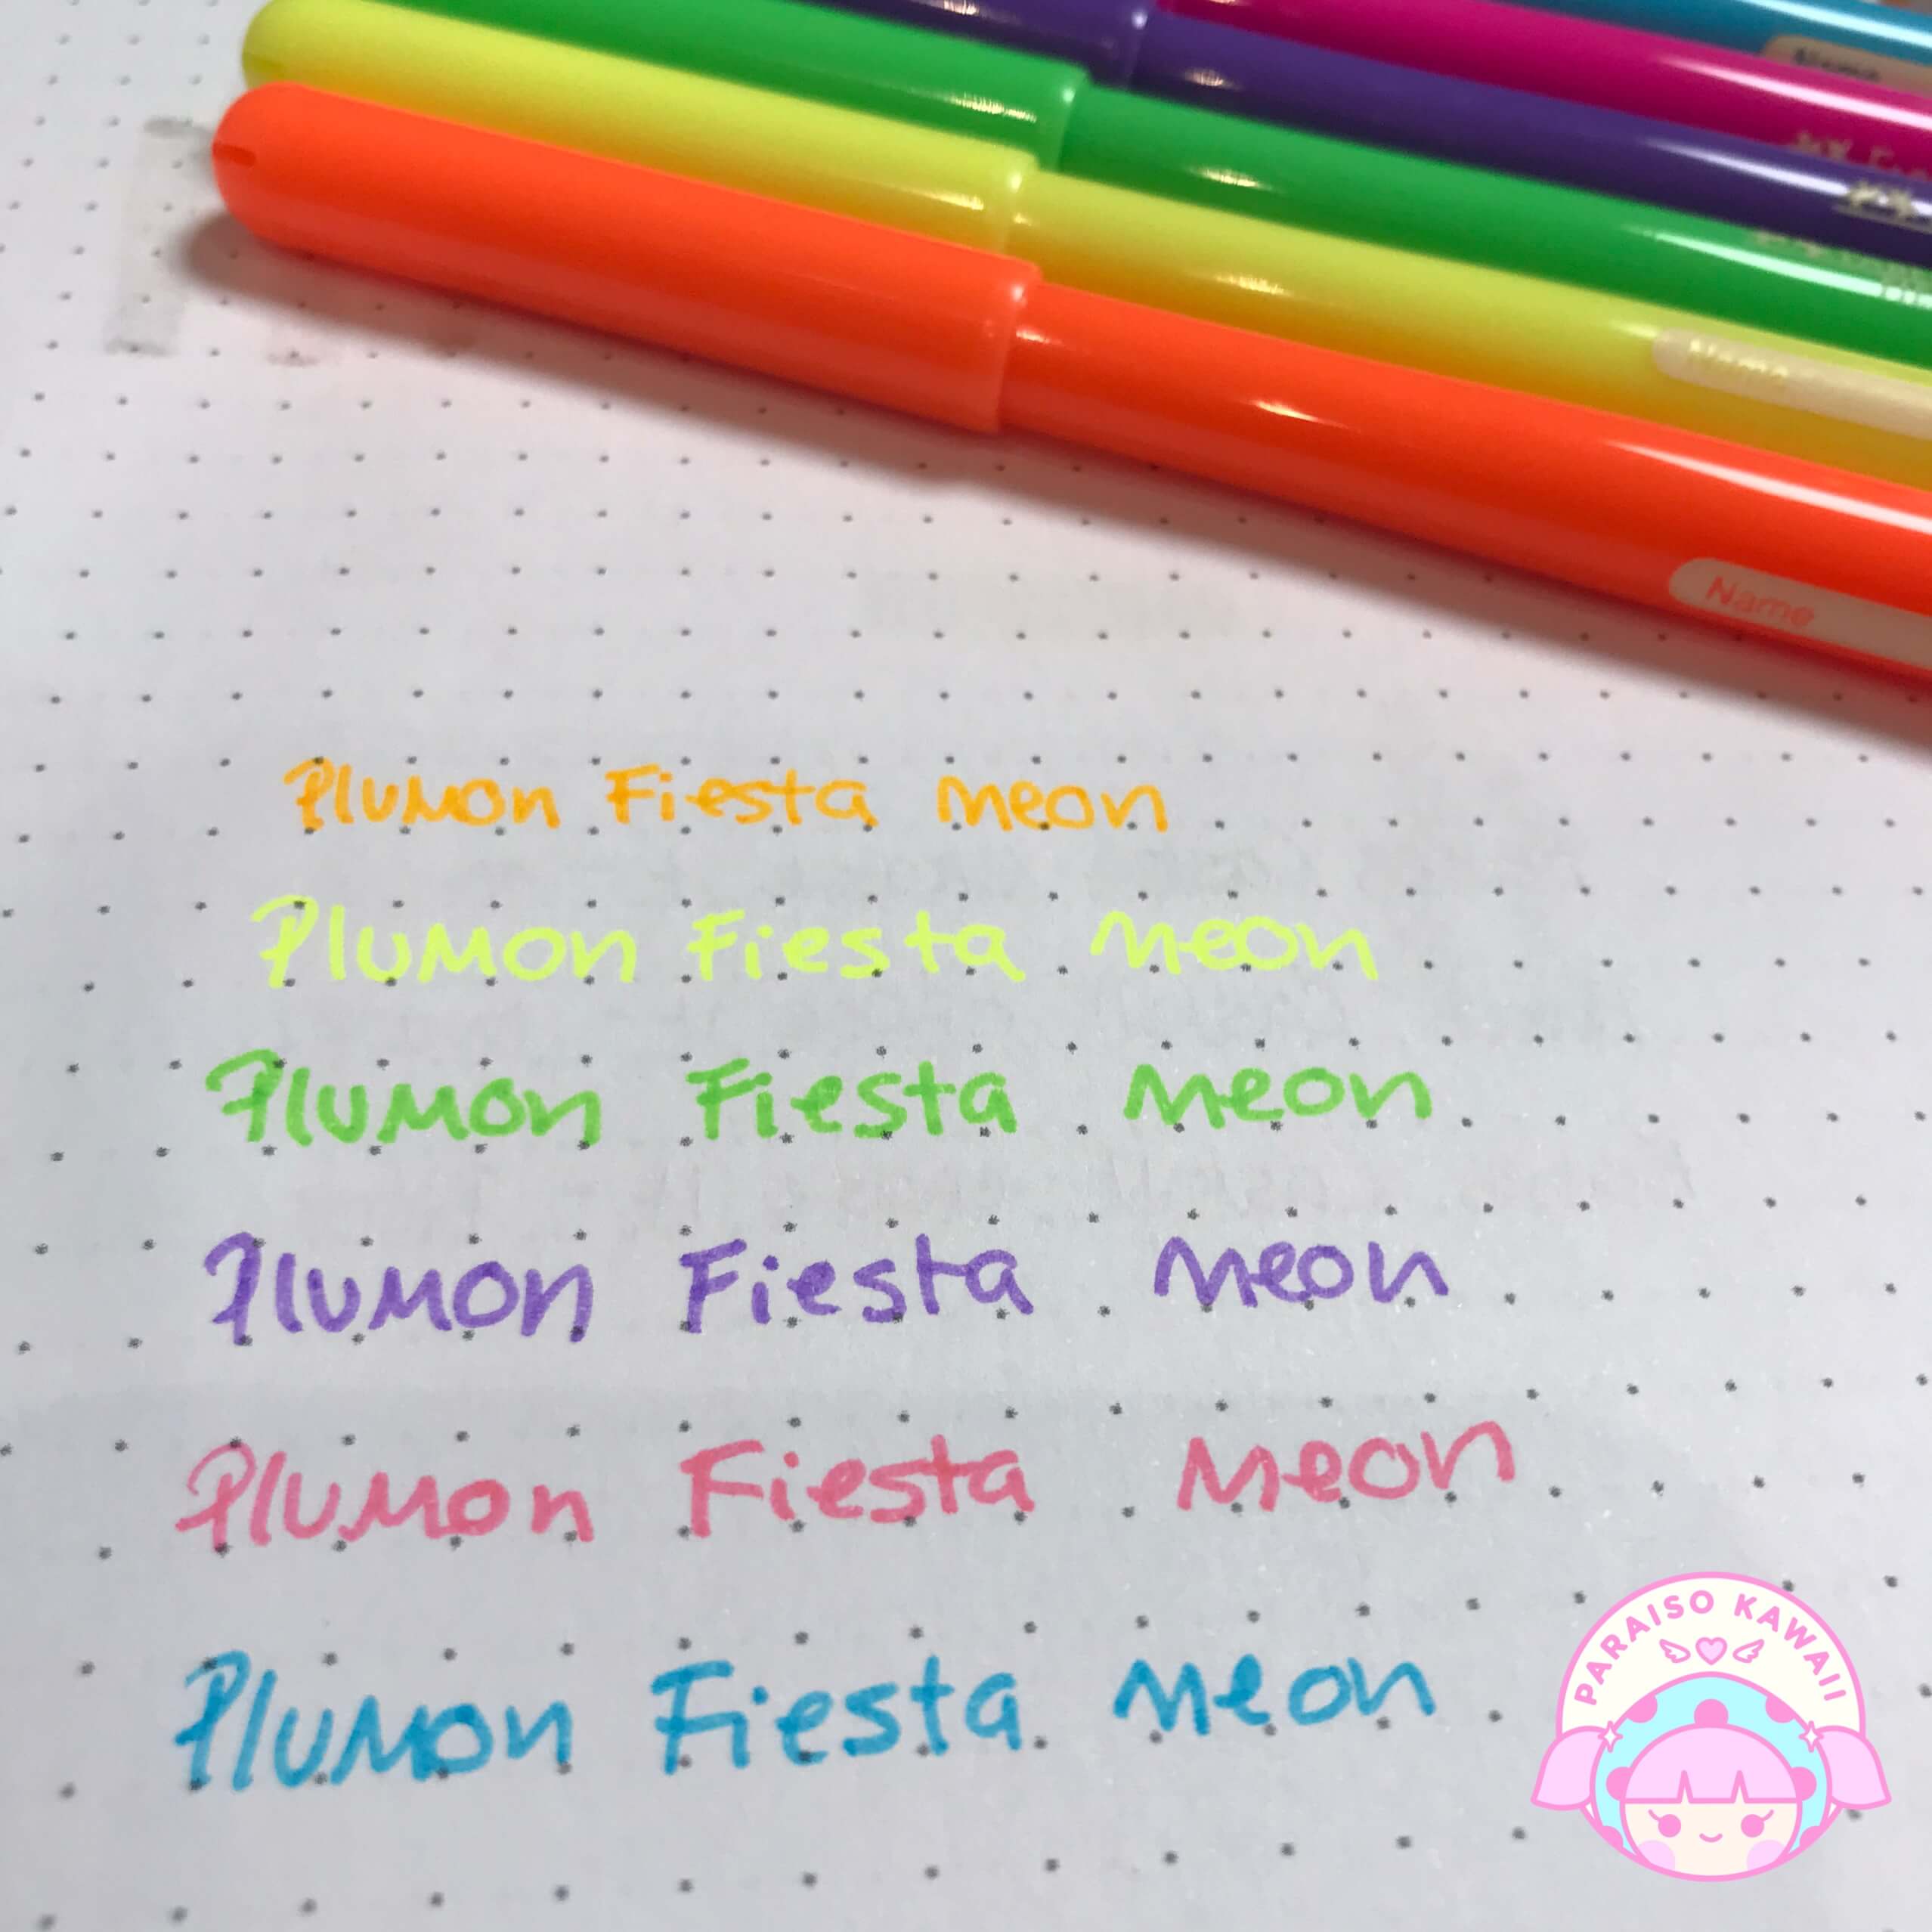 Name
Name
Name
Plumon Fiesta neon
Plumon Fiesta neon
Plumon Fiesta neon
Plumon Fiesta neon
Plumon Fiesta neon
Plumon Fiesta neon
PARAISO KAWAII